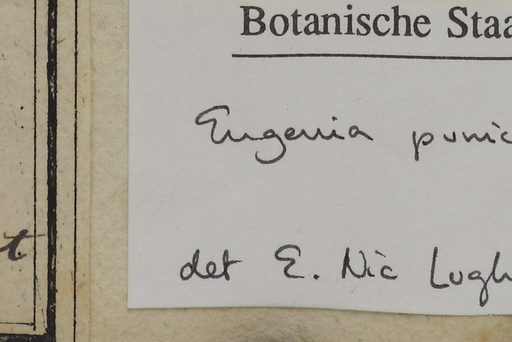 Botanische Staa
Eugenia punic
det E. Nic Lugh
t